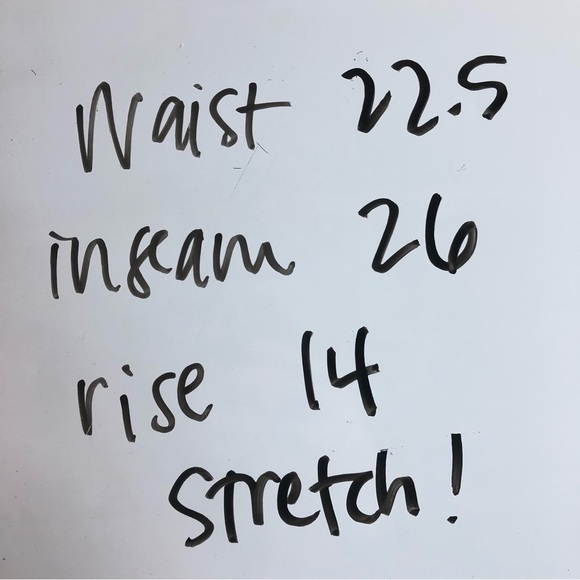 Waist 22.5
inseam 26
rise 14
stretch!